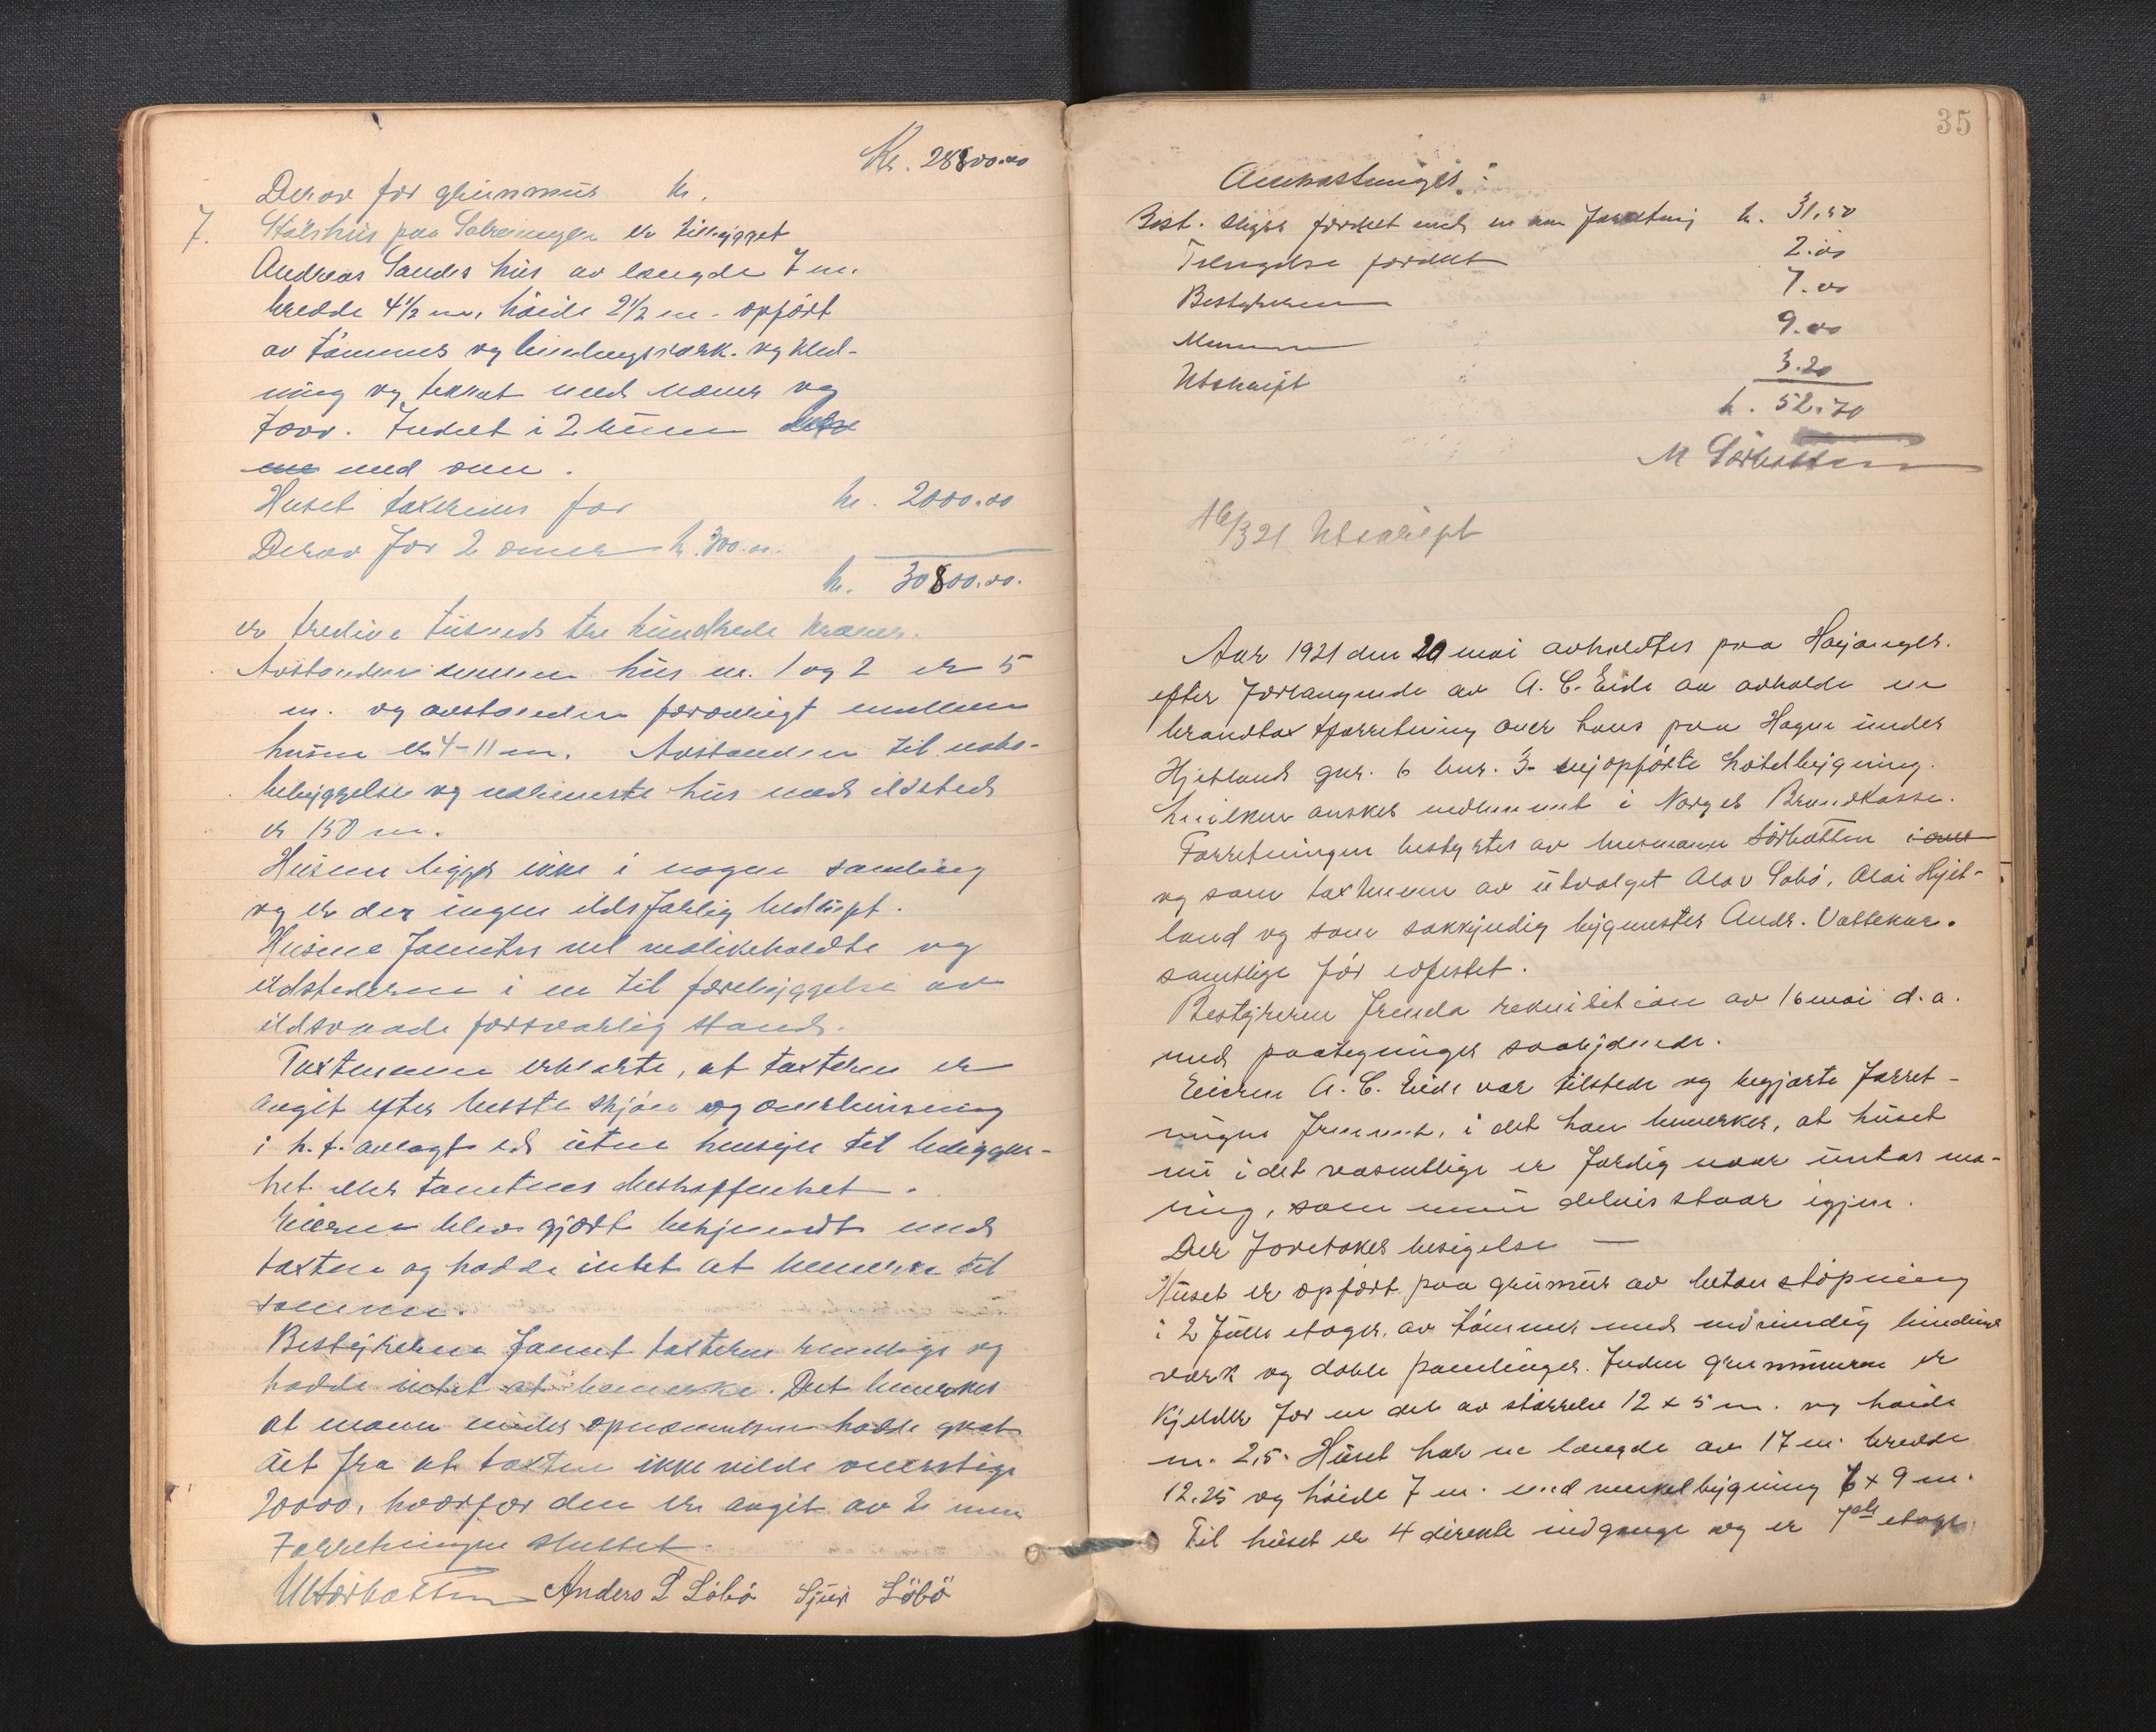 Kr. 28800.00
Derav for grunmur kr.
7. Stølshus paa er tilbygget
Andreas Sandes hus av længde 7 m.
bredde 4½ m, høide 2½ m. opført
av tømmer og bindingsværk og klæd-
ning og tækket med næver og
torv. Indelt i 2 rum
med ovn.
Huset takseres for kr. 2000.00
Derav for 2 ovner kr. 300.00.
kr. 30800.00.
er tredive tusend hundrede kroner.
Avstanden mellem hus nr. 1 og 2 er 5
m. og avstanden forøvrigt mellem
husene er 4-11 m. Avstanden til nabo-
bebyggelse og nærmeste hus med ildsted
er 150 m.
Husene ligger ikke i nogen samling
og er der ingen ildsfarlig bedrift.
Husene fantes vel vedlikeholdte og
ildstederne i en til forebyggelse av
ildsvaade forsvarlig stand.
Taxtmenn erklærte, at taxterne er
angit efter beste skjøn og overbevisning
i h. t. avlagt ed uten hensyn til beliggen-
het eller tomtens beskaffenhet.
Eierne blev gjort bekjendt med
taxten og hadde intet at bemerke til
samme.
Bestyreren fandt taxterne rimelige og
hadde intet at bemerke. Det bemerkes
at mann under opnævnelsen hadde gaat
ut fra at taxten ikke vilde overstige
20000, hvorfor den er angit av 2 menn
Forretningen sluttet.
M Sørbotten Anders L Løbø Sjur Løbø
35
Omkostninger:
Best. skyss fordelt med en ann forretning kr. 31,50
fordelt 2.00
Bestyreren 7.00
Menn 9.00
Utskrift 3.20
kr. 52.70
M Sørbotten
16/3 21 Utskrift
Aar 1921 den 20 mai avholdtes paa Høyanger.
efter forlangende av A. C. Eide en avholdt en
brandtaxtforretning over hans paa Hagen under
Hjetland gnr. 6 bnr. 3 nyopførte hotelbygning.
hvilken ønskes medlemmet i Norges Brandkasse.
Forretningen bestyrtes av lensmann Sørbotten
og som taxtmenn av utvalget Olav Løbø, Olai Hjet-
land og som sakkyndig bygmester Andr. Vattekar.
samtlige før edfestet.
Bestyreren fremla rekvisition av 16 mai d. a.
med paategninger saalydende.
Eieren A. C. Eide var tilstede og begjærte forret-
ningen fremmet, i det han bemerker, at huset
nu i det væsentlige er færdig naar untas ma-
ling, som delvis staar igjen.
Der foretokes besigelse —
Huset er opført paa grunmur av betonstøpning
i 2 fulle etager. av tømmer med utvendig bindings
værk og doble panelinger. Inden grunmuren er
kjelder for en del av størrelse 12 x 5 m. og høide
m. 2,5. Huset har en længde av 17 m. bredde
12.25 og høide 7 m. med vinkelbygning 6 x 9 m.
Til huset er 4 direkte indgange og er 1ste etage